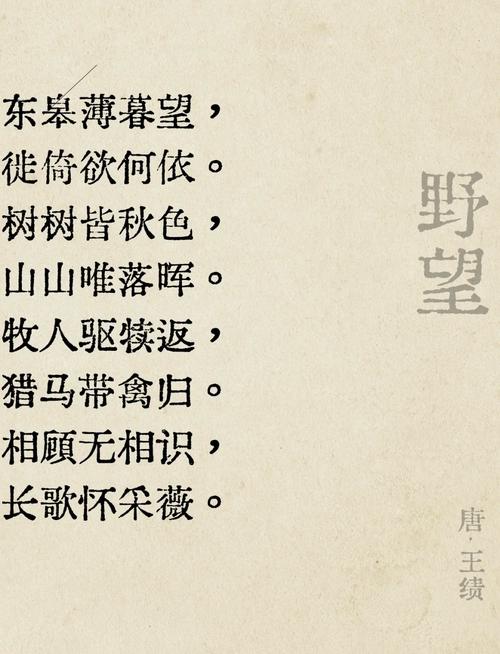 东皋薄暮望，
徙倚欲何依。
树树皆秋色，
山山唯落晖。
牧人驱犊返，
猎马带禽归。
相顾无相识，
长歌怀采薇。
野望
唐·王绩